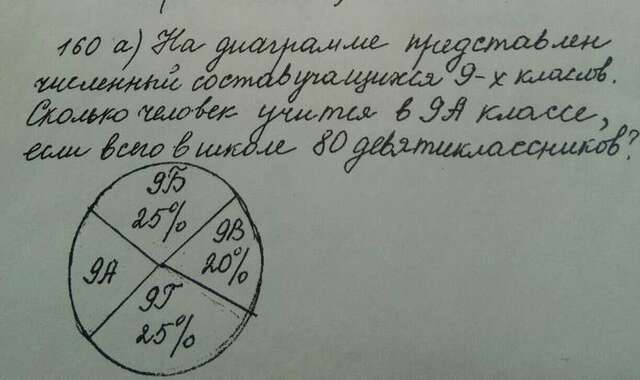 160 а) На диаграмме представлен
численный состав учащихся 9-х класов.
Сколько человек учится в 9А классе,
если всего в школе 80 девятиклассников?
9Б
25%
9В
20%
9А
9Г
25%